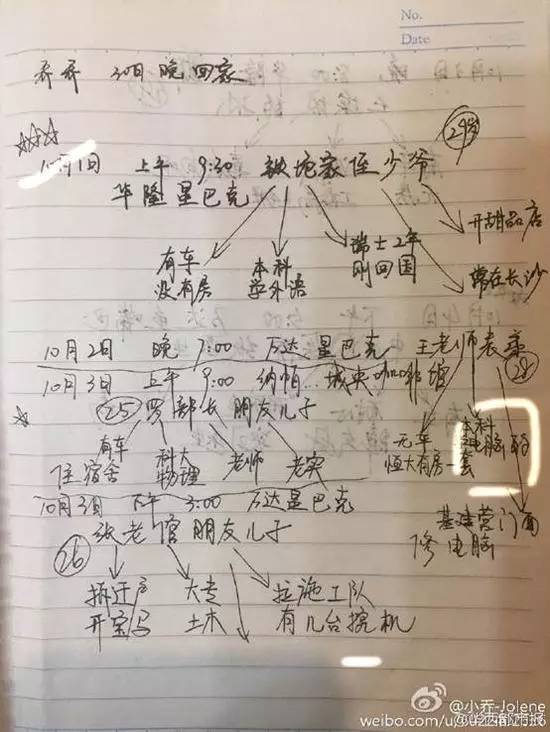 No.
Date
乔乔 30日晚回家
29岁
10月1日 上午 9:30 铁坨家侄少爷
华隆星巴克
有车
没有房
本科
学外语
瑞士2年
刚回国
常在长沙
开甜品店
10月2日 晚 7:00 万达星巴克 王老师表弟
28
无车
恒大有房一套
本科
电脑
基建营门面
修电脑
10月3日 上午 9:00 纳帕...城央
25 罗部长朋友儿子
有车
住宿舍
科大
物理
老师
老实
10月3日 下午 3:00 万达星巴克
张老倌朋友儿子
26
拆迁户
开宝马
大专
土木
拉施工队
有几台挖机
@小乔-Jolene
weibo.com/u/